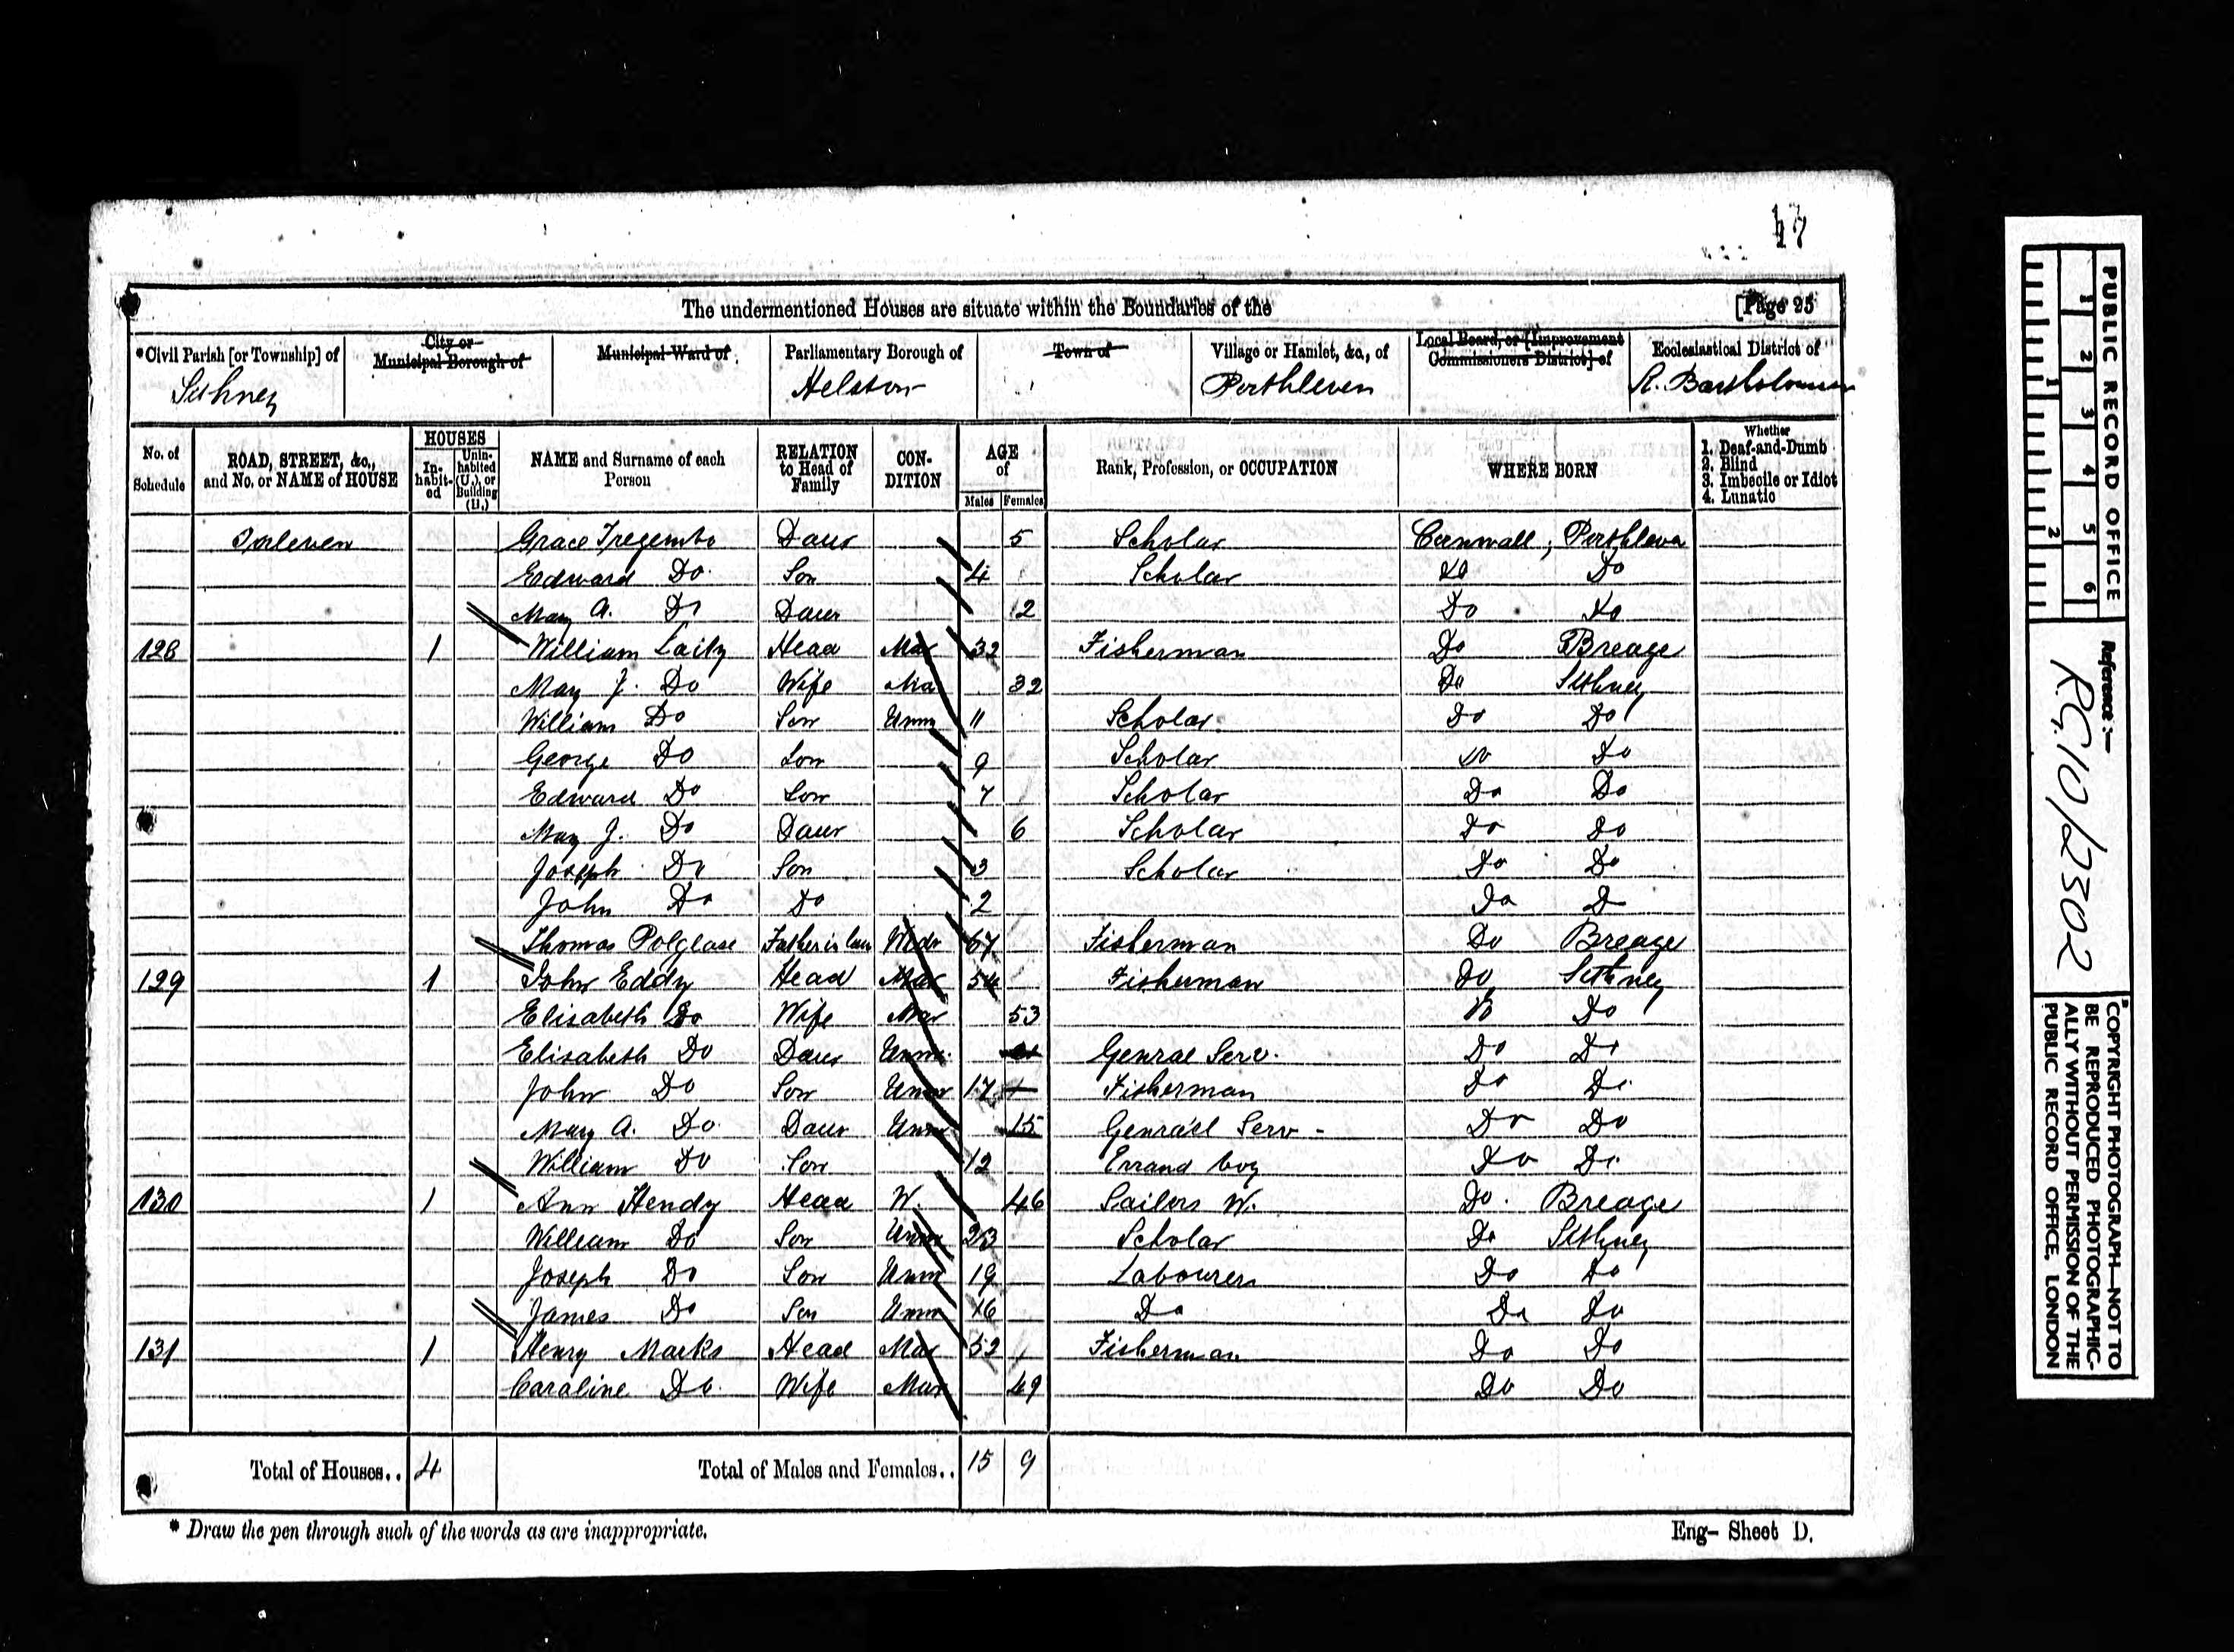 17
The undermentioned Houses are situate within the Boundaries of the [Page 25
*Civil Parish [or Township] of City or Municipal Borough of Municipal Ward of Parliamentary Borough of Town of Village or Hamlet, &c., of Local Board, or [Improvement Commissioners District] of Ecclesiastical District of
Sithney Helston Porthleven St. Bartholomew
No. of Schedule ROAD, STREET, &c., and No. or NAME of HOUSE HOUSES Inhabited Uninhabited (U.), or Building (B.) NAME and Surname of each Person RELATION to Head of Family CONDITION AGE of Males Females Rank, Profession, or OCCUPATION WHERE BORN Whether 1. Deaf-and-Dumb 2. Blind 3. Imbecile or Idiot 4. Lunatic
Grace Tregembo Daur 5 Scholar Cornwall ; Porthleven
Edward Do Son 4 Scholar Do Do
Mary A. Do Daur 2 Do Do
128 1 William Laity Head Mar 32 Fisherman Do Breage
Mary J. Do Wife Mar 32 Do Sithney
William Do Son Unm 11 Scholar Do Do
George Do Son 9 Scholar Do Do
Edward Do Son 7 Scholar Do Do
Mary J. Do Daur 6 Scholar Do Do
Joseph Do Son 3 Scholar Do Do
John Do Do 2 Do D
Thomas Polglase Father in law Widr 67 Fisherman Do Breage
129 1 John Eddy Head Mar 54 Fisherman Do Sithney
Elisabeth Do Wife Mar 53 Do Do
Elisabeth Do Daur Unm Genrae Serv. Do Do
John Do Son Unm 17 Fisherman Do Do
Mary A. Do Daur Unm 15 Genrael Serv - Do Do
William Do Son 12 Errand boy Do Do
130 1 Ann Hendy Head W. 46 Sailors W. Do. Breage
William Do Son Unm 23 Scholar Do Sithney
Joseph Do Son Unm 19 Labourer Do Do
James Do Son Unm 16 Do Do Do
131 1 Henry Marks Head Mar 52 Fisherman Do Do
Caroline Do Wife Mar 49 Do Do
Total of Houses.. 4 Total of Males and Females.. 15 9
* Draw the pen through such of the words as are inappropriate.
Eng- Sheet D.
PUBLIC RECORD OFFICE
1 2 3 4 5 6
1 2
Reference :-
R.G. 10/2302
COPYRIGHT PHOTOGRAPH—NOT TO
BE REPRODUCED PHOTOGRAPHIC-
ALLY WITHOUT PERMISSION OF THE
PUBLIC RECORD OFFICE, LONDON